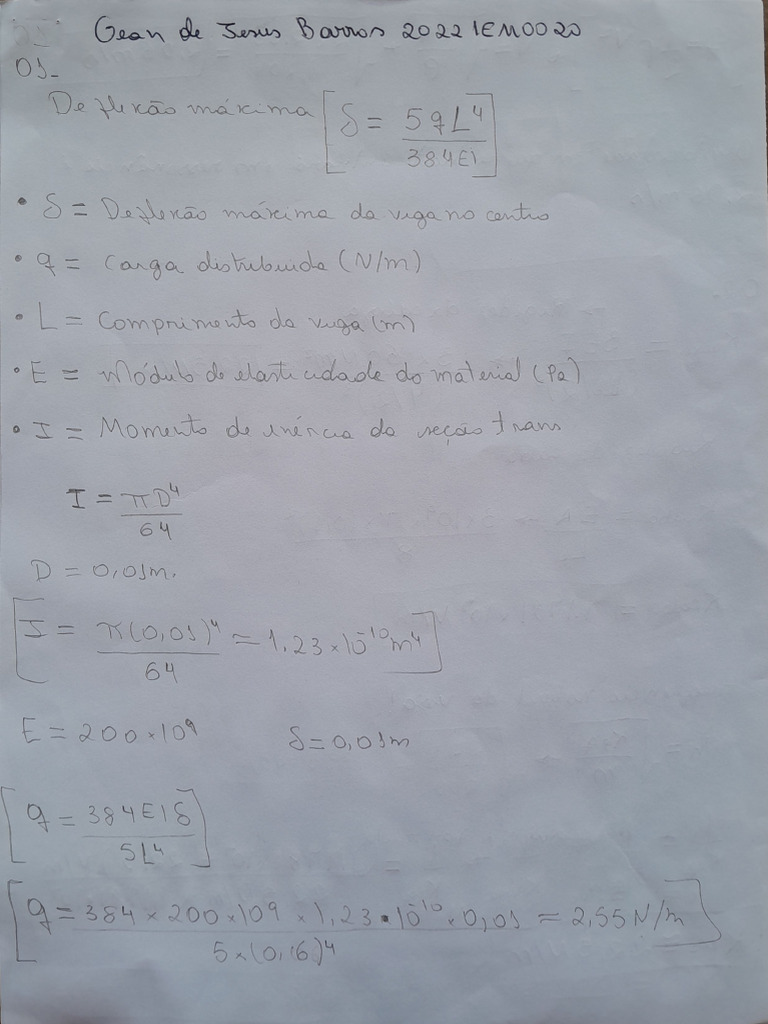 Gean de Jesus Barros 20221EM0020
01_
Deflexão máxima [δ = 5qL⁴/384EI]
• δ = Deflexão máxima da viga no centro
• q = Carga distribuida (N/m)
• L = Comprimento da viga (m)
• E = Módulo de elasticidade do material (Pa)
• I = Momento de inércia da seção trans
I = πD⁴/64
D = 0,01m.
[I = π(0,01)⁴/64 = 1,23 × 10⁻¹⁰ m⁴]
E = 200 × 10⁹ δ = 0,01m
[q = 384EIδ/5L⁴]
[q = 384 × 200 × 10⁹ × 1,23 • 10⁻¹⁰ × 0,01/5 × (0,16)⁴ = 2,55 N/m]